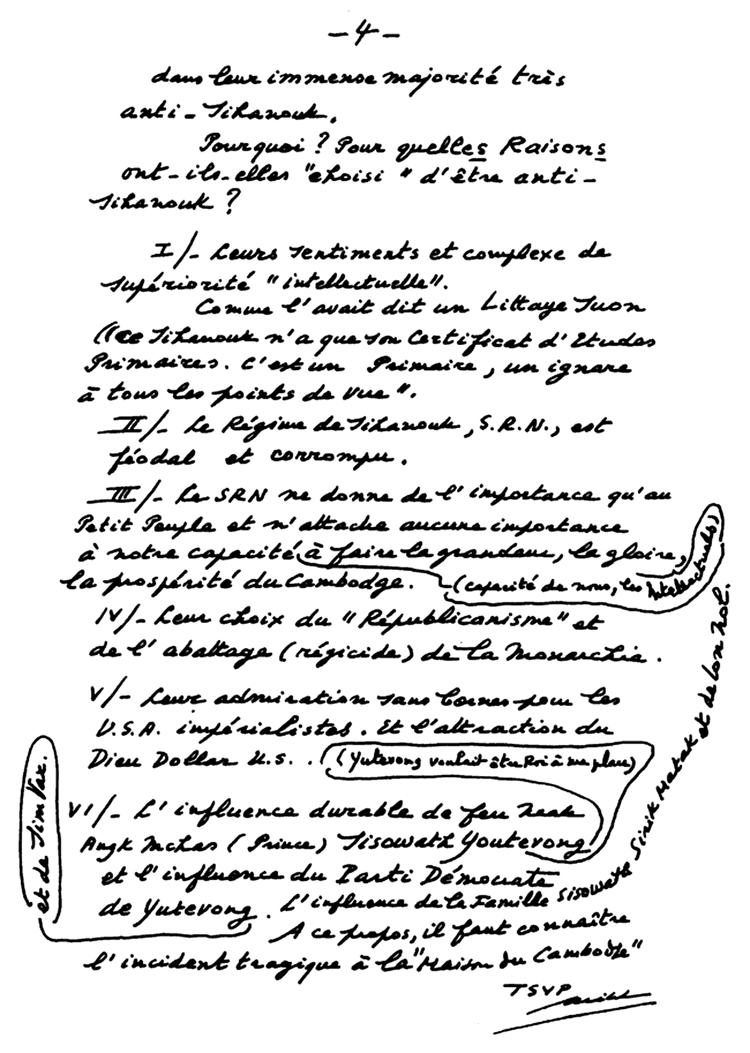 -4-
dans leur immense majorité très
anti-Sihanouk.
Pourquoi ? Pour quelles Raisons
ont-ils-elles "choisi" d'être anti-
Sihanouk ?
I/- Leurs sentiments et complexe de
supériorité "intellectuelle".
Comme l'avait dit un Littaye Suon
"Ce Sihanouk n'a que son Certificat d'Etudes
Primaires. C'est un Primaire, un ignare
à tous les points de vue".
II/- Le Régime de Sihanouk, S.R.N., est
féodal et corrompu.
III/- Le SRN ne donne de l'importance qu'au
Petit Peuple et n'attache aucune importance
à notre capacité à faire la grandeur, la gloire,
la prospérité du Cambodge. (capacité de nous, les Intellectuels)
IV/- Leur choix du "Républicanisme" et
de l'abattage (régicide) de la Monarchie.
V/- Leur admiration sans bornes pour les
U.S.A. impérialistes. Et l'attraction du
Dieu Dollar U.S.. (Yutevong voulait être Roi à ma place)
VI/- L'influence durable de feu Neak
Angk Mchas (Prince) Sisowath Youtevong
et l'influence du Parti Démocrate
de Yutevong. L'influence de la Famille Sisowath Sirik Matak et de Lon Nol.
et de Sim Var.
A ce propos, il faut connaître
l'incident tragique à la "Maison du Cambodge"
TSVP